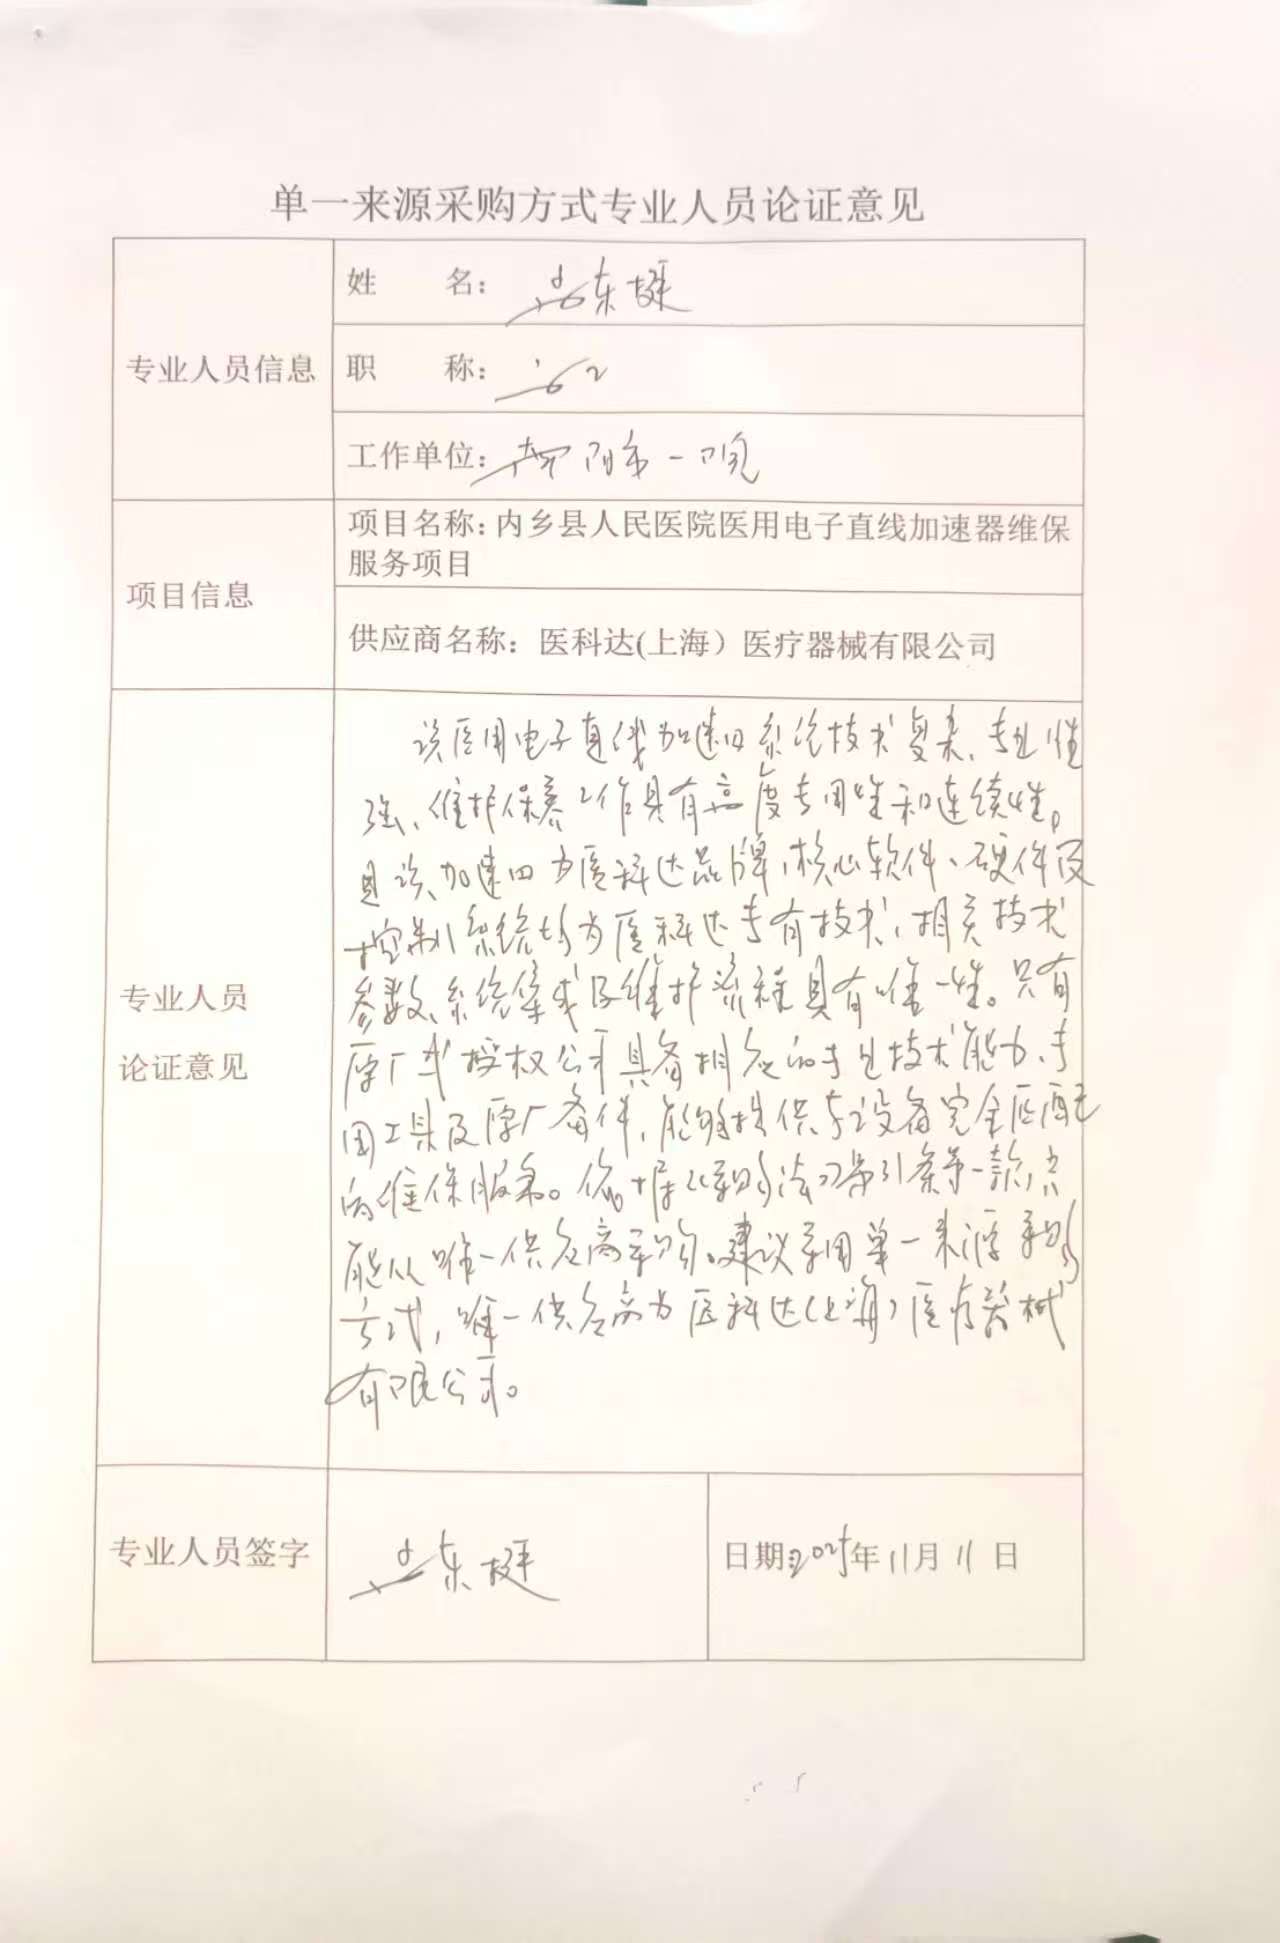 单一来源采购方式专业人员论证意见
专业人员信息
姓 名：东
职 称：
工作单位：南阳市一院
项目信息
项目名称：内乡县人民医院医用电子直线加速器维保
服务项目
供应商名称：医科达(上海）医疗器械有限公司
专业人员
论证意见
该医用电子直线加速器系统技术复杂、专业性
强、维护保养工作具有高度专用性和连续性。
且该加速器为医科达品牌，核心软件、硬件及
控制系统均为医科达专有技术，相关技术
参数、系统集成及维护流程具有唯一性。只有
原厂或授权公司具备相应的专业技术能力、专
用工具及原厂备件，能够提供与设备完全匹配
的维保服务。依据《采购法》第31条第一款，只
能从唯一供应商采购。建议采用单一来源采购
方式，唯一供应商为医科达（上海）医疗器械
有限公司。
专业人员签字
东
日期：2025年11月11日